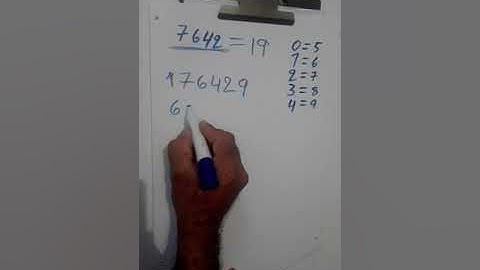 7642 = 19
176429
6
0=5
1=6
2=7
3=8
4=9